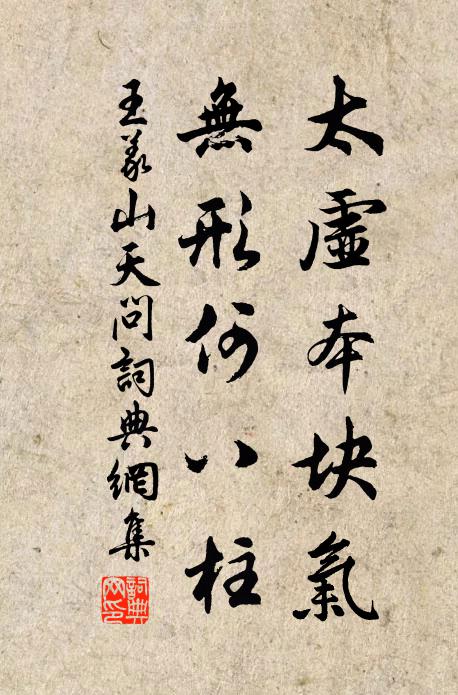 太虛本块氣
無形何八柱
王義山天問詞典網集
詞典网印